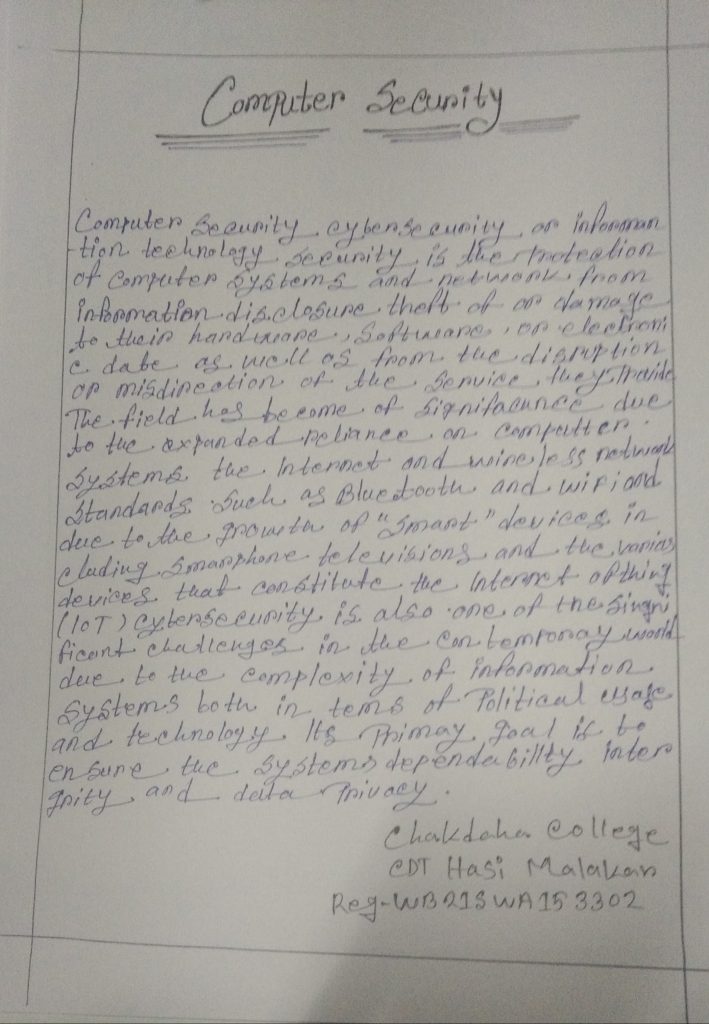 Computer Security
Computer Security, cybersecurity, or informan
tion technology security is the Protection
of Computer Systems and network from
information disclosure theft of or damage
to their hardware, Software, or electroni
c date as well as from the disruption
or misdirection of the Service they Provide
The field has become of Signifacunce due
to the expanded reliance on computter
Systems the Internet and wireless network
Standards Such as Bluetooth and wifi and
due to the growth of "Smart" devices in
cluding Smarphone televisions and the varias
devices that constitute the Internet of thing
(IoT) Cybersecurity is also one of the Singni
ficant challenges in the contemporay world
due to the complexity of information
Systems both in tems of Political usage
and technology. Its Primay goal is to
ensure the systems dependability, inter
grity and data Privacy.
Chakdaha College
CDT Hasi Malakar
Reg-WB21SWA153302